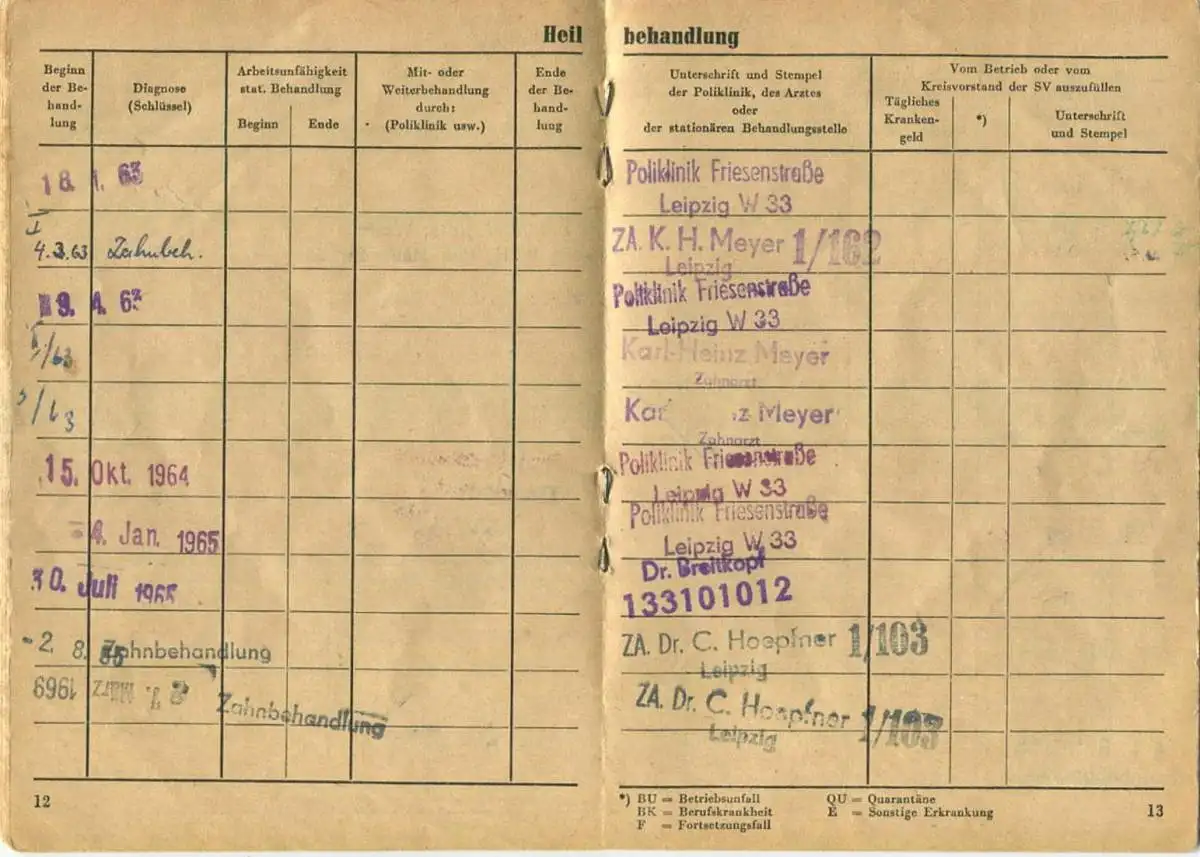 Heilbehandlung
Beginn der Be-hand-lung
Diagnose (Schlüssel)
Arbeitsunfähigkeit stat. Behandlung
Beginn
Ende
Mit- oder Weiterbehandlung durch: (Poliklinik usw.)
Ende der Be-hand-lung
Unterschrift und Stempel der Poliklinik, des Arztes oder der stationären Behandlungsstelle
Vom Betrieb oder vom Kreisvorstand der SV auszufüllen
Tägliches Kranken-geld
*)
Unterschrift und Stempel
18. 1. 63
Poliklinik Friesenstraße
Leipzig W 33
I
4.3.63 Zahnbeh.
ZA. K. H. Meyer 1/162
Leipzig
9. 4. 63
Poliklinik Friesenstraße
Leipzig W 33
/63
Karl-Heinz Meyer
Zahnarzt
/63
Kar nz Meyer
Zahnarzt
15. Okt. 1964
Poliklinik Friesenstraße
Leipzig W 33
4. Jan. 1965
Poliklinik Friesenstraße
Leipzig W 33
30. Juli 1965
Dr. Breitkopf
133101012
-2. 8. Zahnbehandlung
ZA. Dr. C. Hoepfner 1/103
Leipzig
MRZ 1969
Zahnbehandlung
ZA. Dr. C. Hoepfner 1/103
Leipzig
12
*) BU = Betriebsunfall
BK = Berufskrankheit
F = Fortsetzungsfall
QU = Quarantäne
E = Sonstige Erkrankung
13